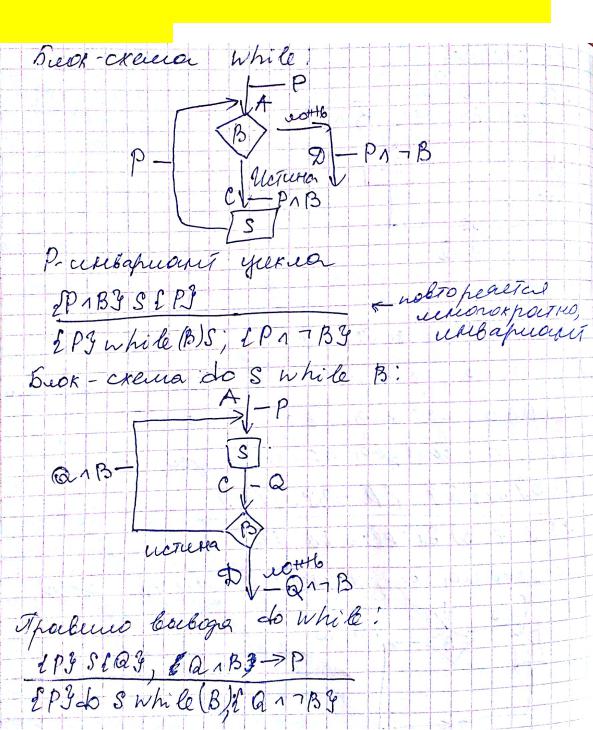 Блок-схема while:
P
A
B
ложь
P
Д
P∧¬B
Истина
C
P∧B
S
P-инвариант цикла
{P∧B} S {P}
{P} while(B)S; {P∧¬B}
← повторяется
многократно,
инвариант
Блок-схема do S while B:
A
P
S
Q∧B
C
Q
B
истина
Д
ложь
Q∧¬B
Правило вывода do while:
{P} S {Q}, {Q∧B}→P
{P} do S while(B); {Q∧¬B}